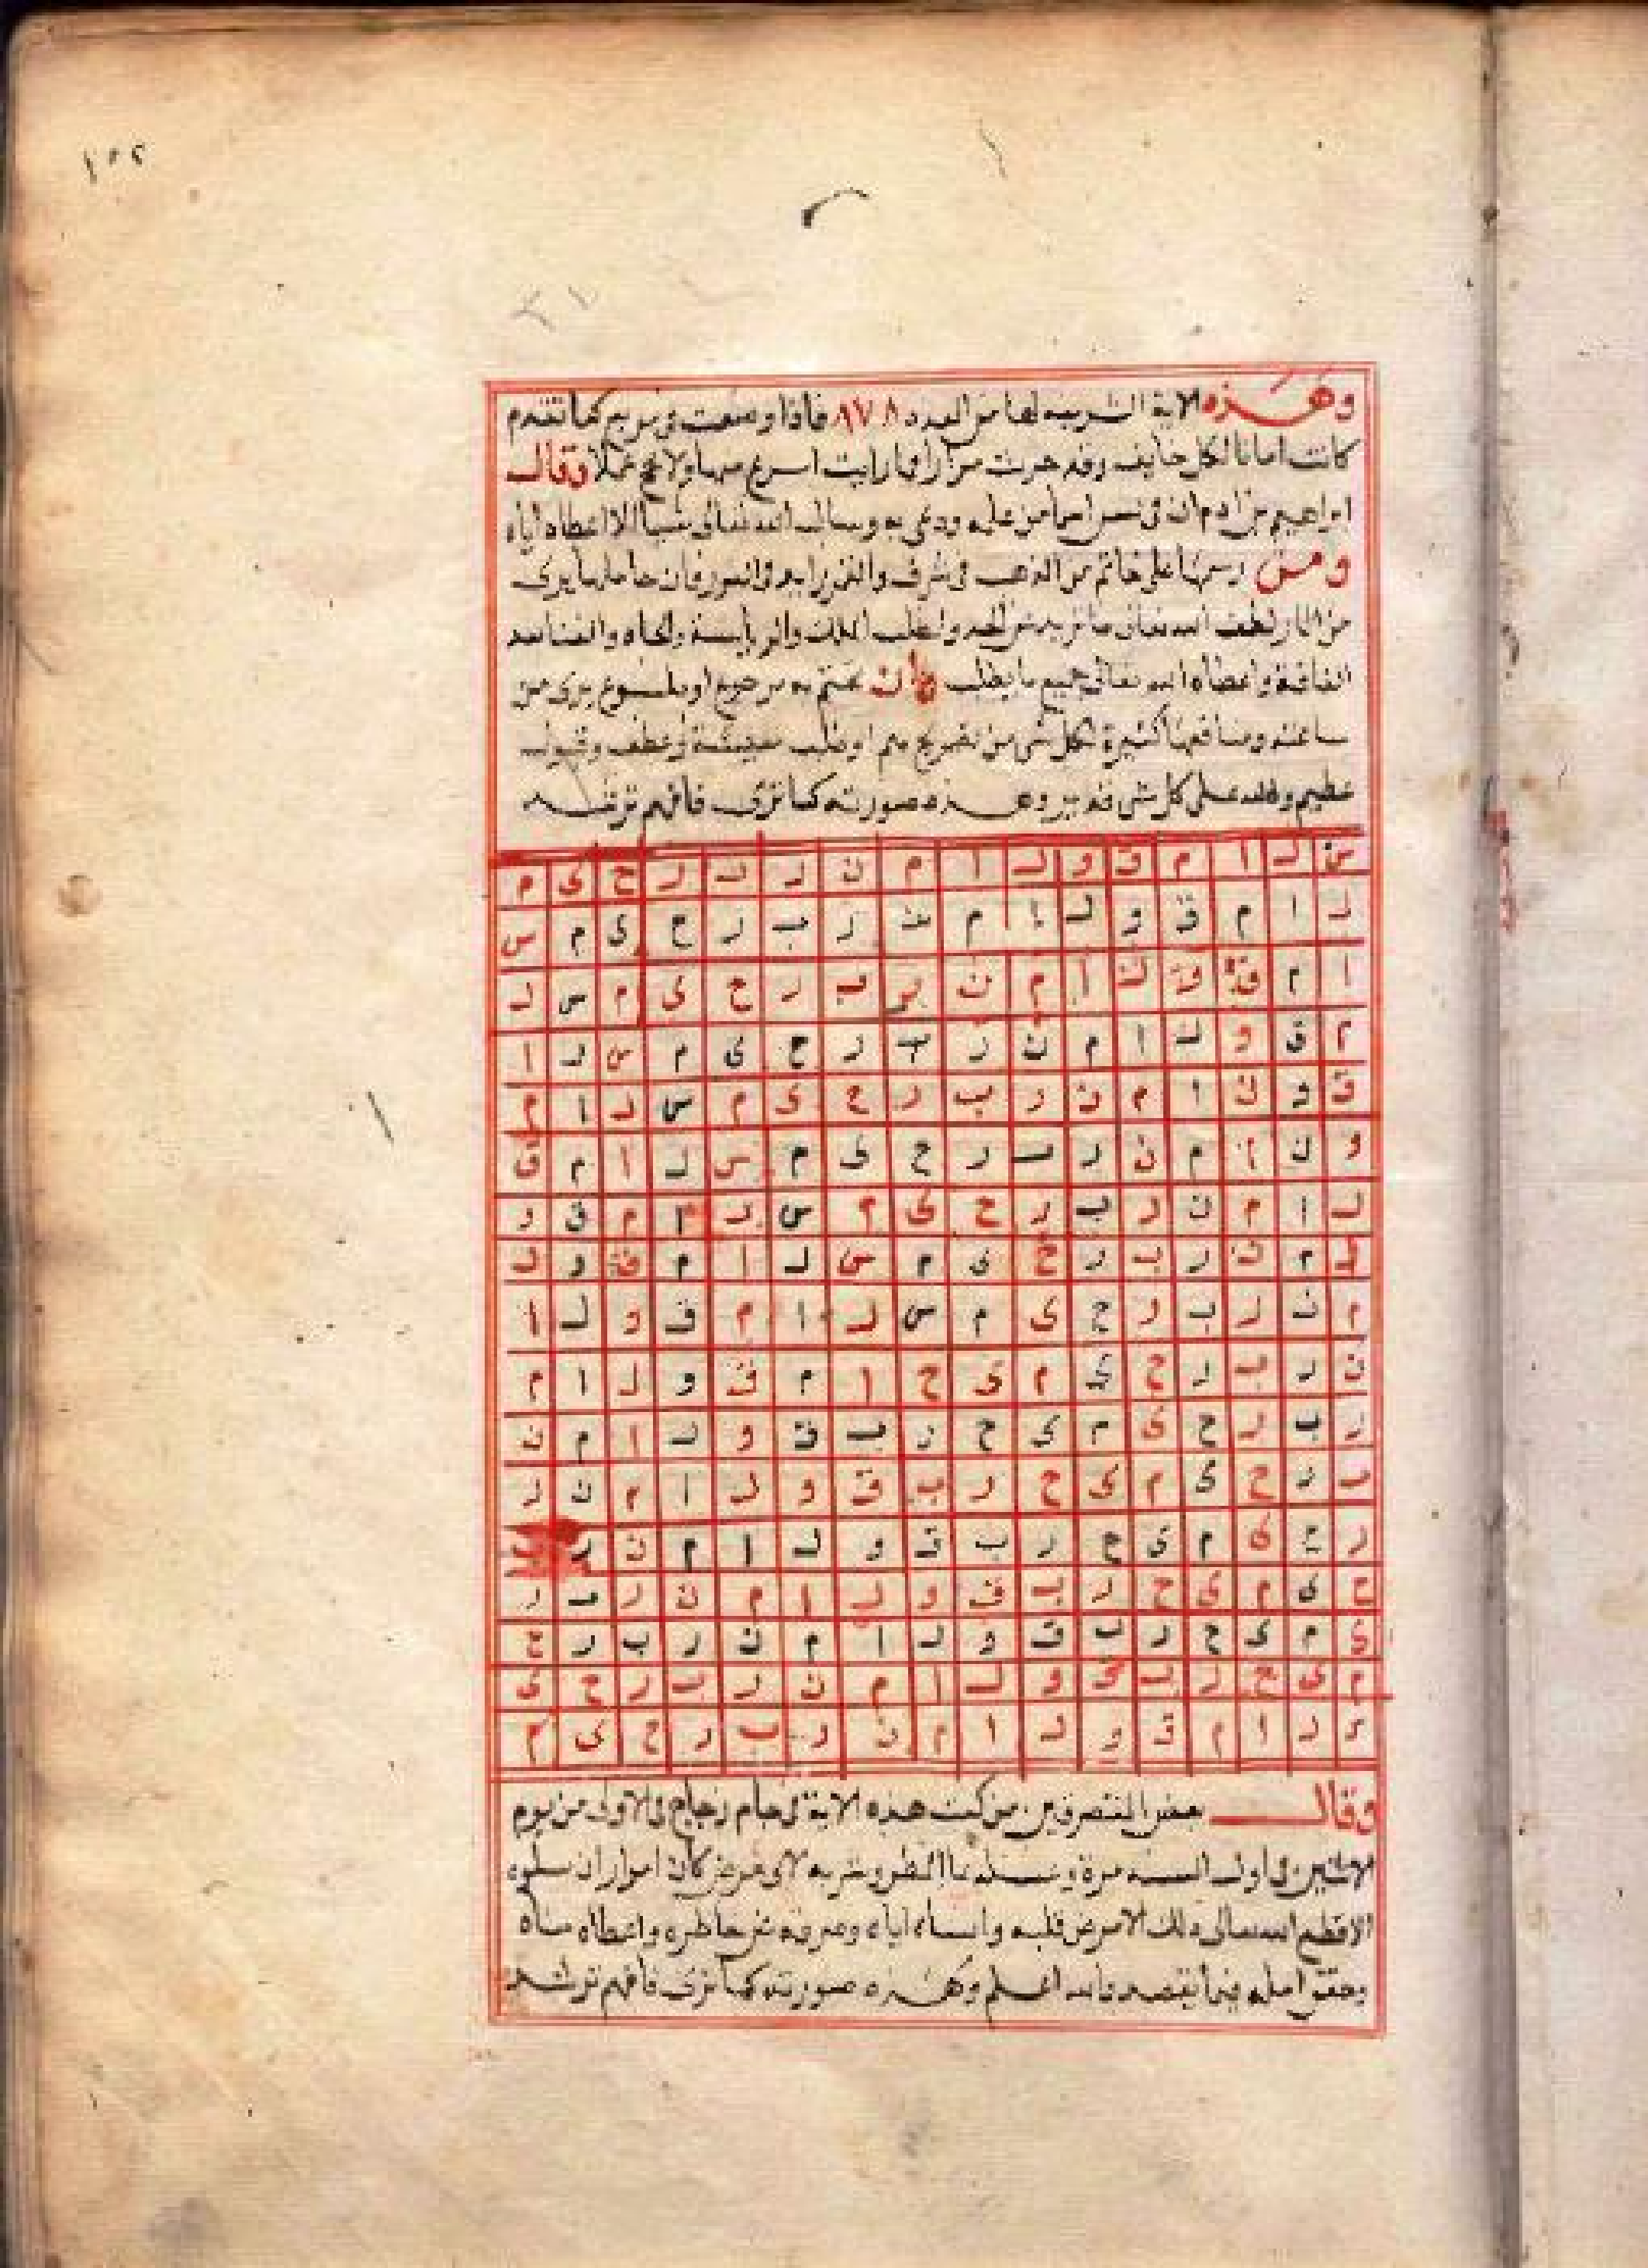 ١٥٢
وهذه الاية الشريفه لها من العدد ٨٧٨ فاذا وضعت فى مربع كما تقدم
كانت امانا لكل خايف وقد جربت مرارا فما رايت اسرع منها ولا عملا وقال
ابراهيم بن ادهم ان فى اسما من علمه ودعى به وسال الله تعالى شيا الا اعطاه اياه
ومن رسمها على خاتم من الذهب فى شرف والقمر زايد فى النور فان حاملها يرى
من لطف الله تعالى ما والرياسة والجاه
واعطاه الله تعالى جميع ما يطلب وان ختم به او ملسوع برى من
ساعته ومنافعها كثيرة لكل شى من تفريج هم او طلب معيشة او عطف وقبول
عظيم والله على كل شى قدير وهذه صورته كما ترى فافهم ترشد
س ل ا م ق و ل ا م ن ر ب ر ح ى م
ل ا م ق و ل ا م ن ر ب ر ح ى م س
ا م ق و ل ا م ن ر ب ر ح ى م س ل
م ق و ل ا م ن ر ب ر ح ى م س ل ا
ق و ل ا م ن ر ب ر ح ى م س ل ا م
و ل ا م ن ر ب ر ح ى م س ل ا م ق
ل ا م ن ر ب ر ح ى م س ل ا م ق و
م ن ر ب ر ح ى م س ل ا م ق و ل
م ن ر ب ر ح ى م س ل ا م ق و ل ا
ن ر ب ر ح ى م ى ح ا م ق و ل ا م
ر ب ر ح ى م ى ح ر ب ق و ل ا م ن
ب ر ح ى م ى ح ر ب ق و ل ا م ن ر
ر ح ى م ى ح ر ب ق و ل ا م ن ر
ح ى م ى ح ر ب ق و ل ا م ن ر ب ر
ى م ى ح ر ب ق و ل ا م ن ر ب ر ح
م ى ح ر ب ق و ل ا م ن ر ب ر ح ى
س ل ا م ق و ل ا م ن ر ب ر ح ى م
وقال بعض المتصرفين من كتب هذه الاية فى جام زجاج فى الاولى من يوم
الاثنين فى اول السنه مرة وغسله بماالمطر وشربه لاى غرض كان اموار ان سلوه
الا قطع الله تعالى ذلك الامر عن قلبه وانساه اياه وصرفه عن خاطره واعطاه مناه
وحقق امله فيما يقصد والله اعلم وهذه صورته كما ترى فافهم ترشد